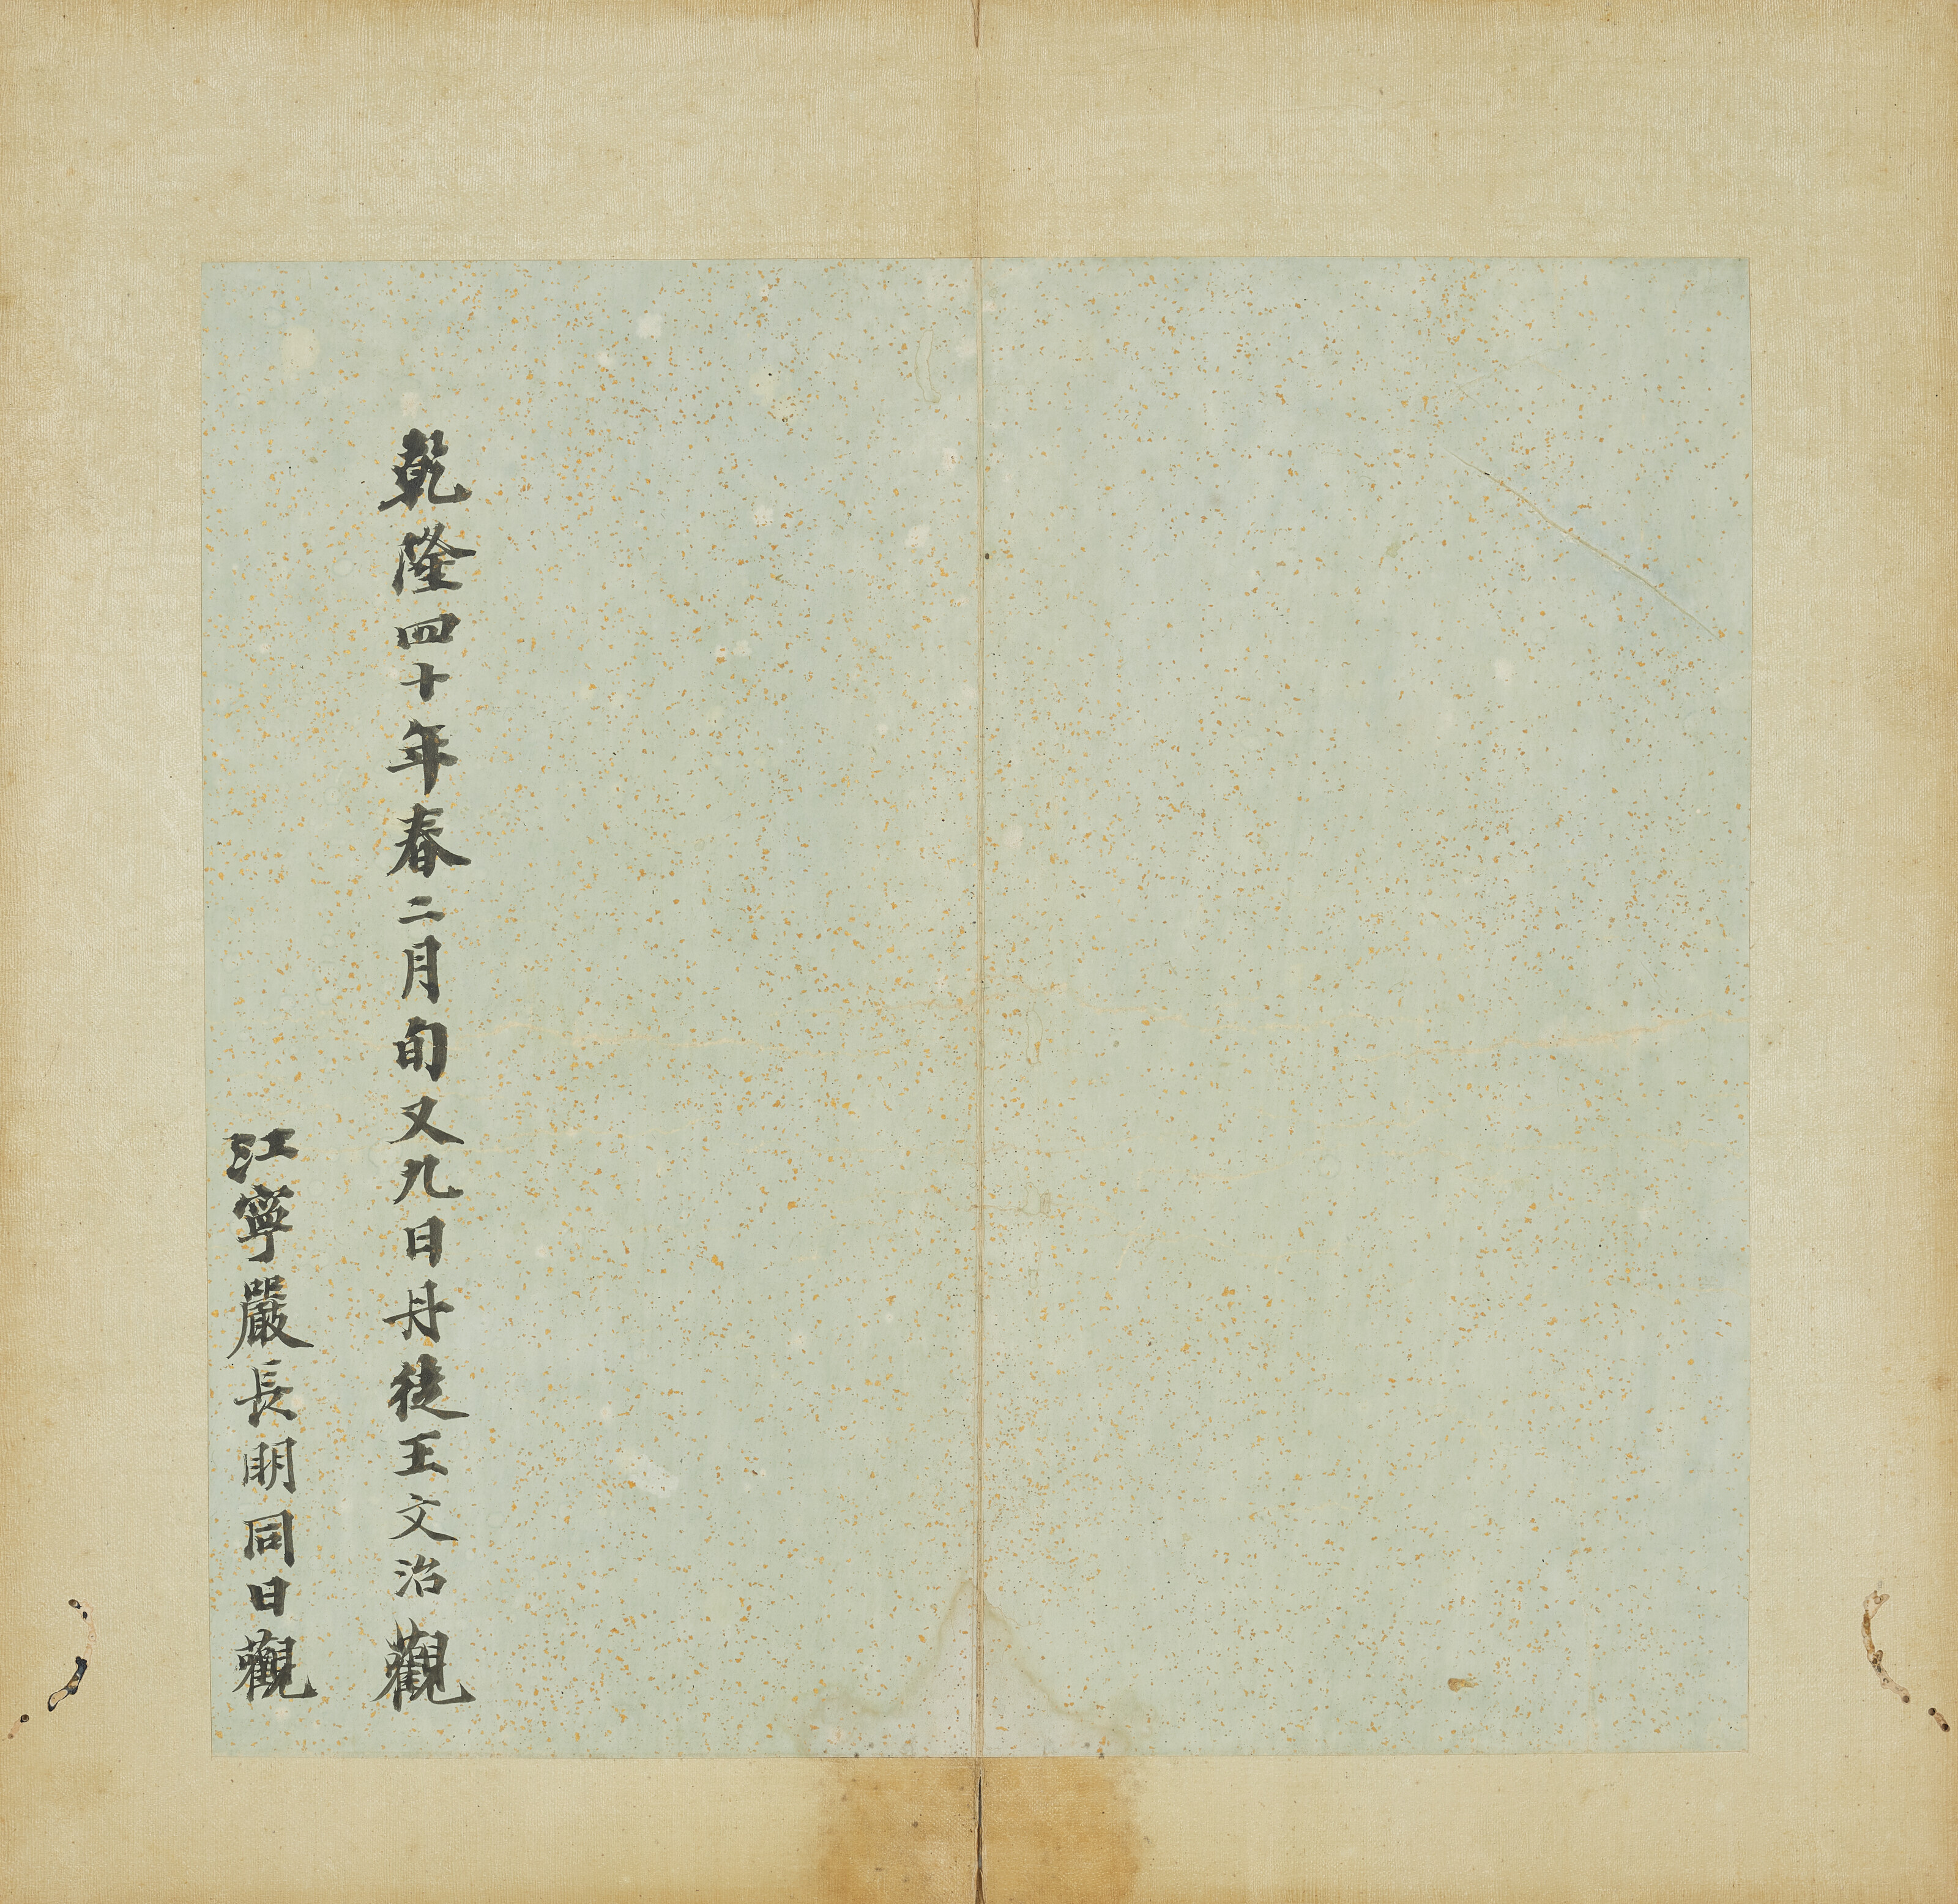 乾隆四十年春二月旬又九日丹徒王文治觀
江寧嚴長明同日觀